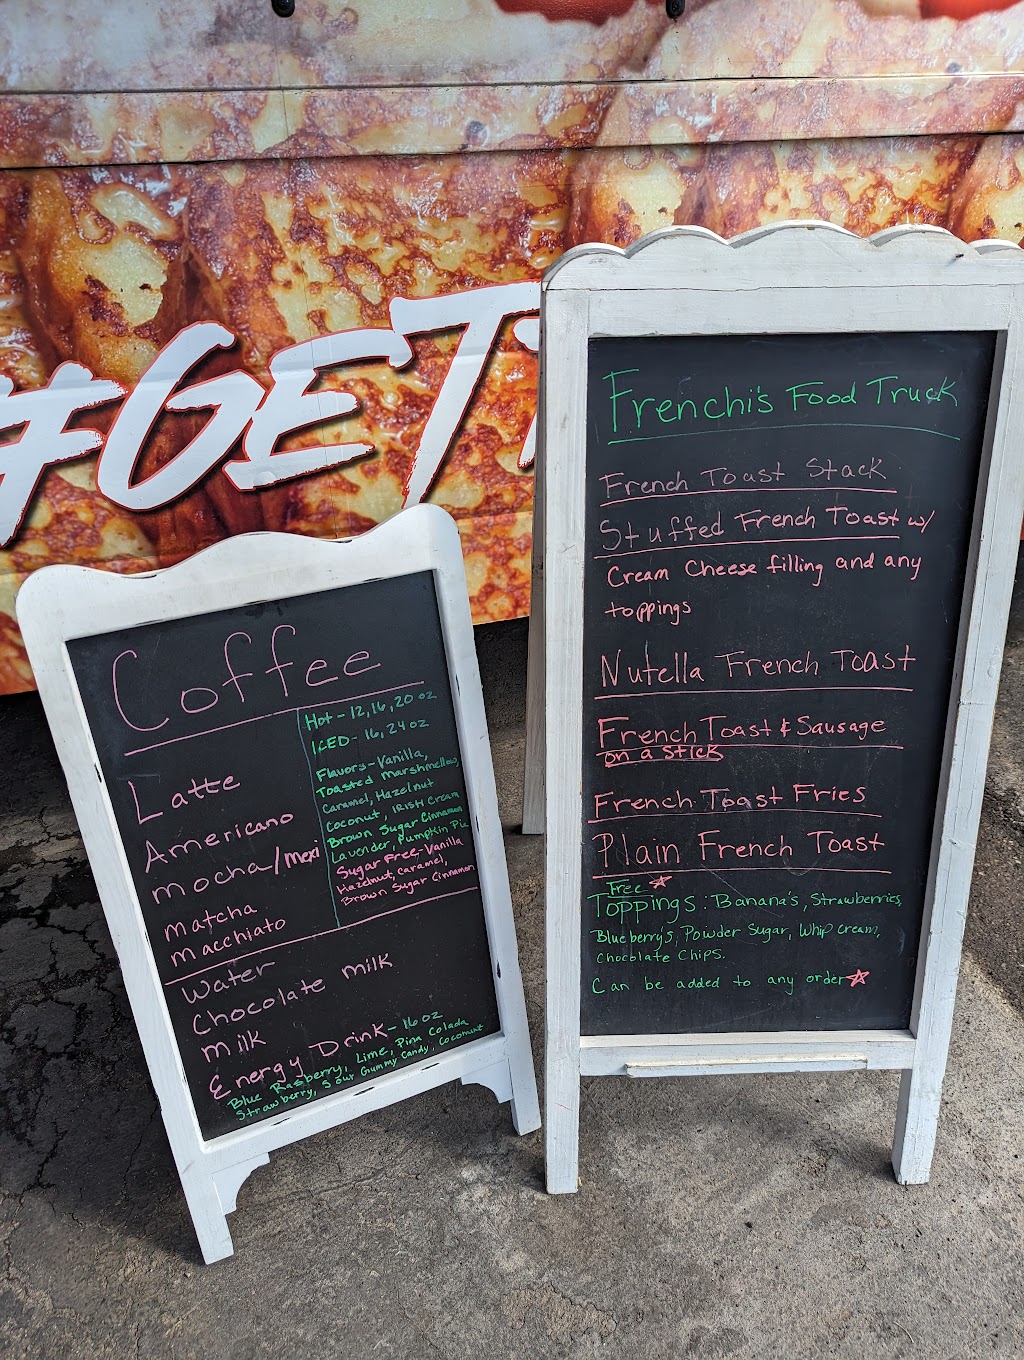 #GET
Frenchi's Food Truck
French Toast Stack
Stuffed French Toast w/
Cream Cheese filling and any
toppings
Nutella French Toast
French Toast & Sausage
on a stick
French Toast Fries
Plain French Toast
Free
Toppings: Banana's, Strawberries,
Blueberry's, Powder Sugar, Whip cream,
Chocolate Chips.
Can be added to any order
Coffee
Hot - 12, 16, 20 oz
ICED - 16, 24 oz
Latte
Americano
mocha/mexi
matcha
macchiato
Flavors - Vanilla,
Toasted marshmellow,
Caramel, Hazelnut
Coconut, IRISH Cream
Brown Sugar Cinnamon
Lavender, Pumpkin Pie
Sugar Free - Vanilla
Hazelnut, caramel,
Brown Sugar Cinnamon
Water
Chocolate milk
milk
Energy Drink - 16 oz
Blue Rasberry, Lime, Pina Colada
Strawberry, Sour Gummy Candy, Cocomint